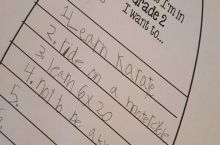 I'm in
grade 2
I want to...
1. Learn Karate
2. ride on a
3. learn 6x20
4. not to be a
5.